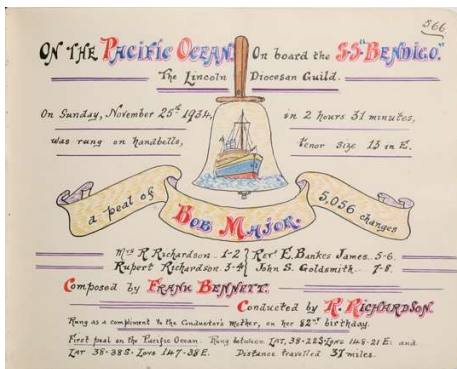 566
ON THE PACIFIC OCEAN. On board the S.S. "BENDIGO."
The Lincoln Diocesan Guild.
On Sunday, November 25st 1934, in 2 hours 31 minutes,
was rung on handbells, tenor size 13 in E.
a peal of BOB MAJOR. 5,056 changes
Mrs R Richardson.. 1-2 Revd E. Bankes James. 5-6.
Rupert Richardson. 3-4 John S. Goldsmith.. 7-8.
Composed by FRANK BENNETT.
Conducted by R. RICHARDSON.
Rung as a compliment to the Conductor's mother, on her 82nd birthday.
First peal on the Pacific Ocean. Rung between LAT. 38-22S-LONG 148-21E: and
LAT 38-38S-LONG 147-38E. Distance travelled 37 miles.